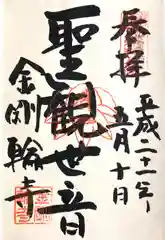 奉拝
平成二十一年
五月十日
聖観世音
金剛輪寺